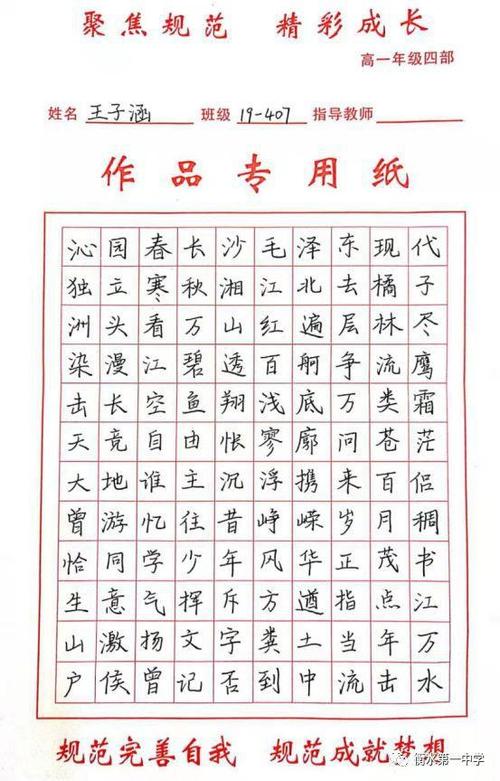 聚焦规范 精彩成长
高一年级四部
姓名 王子涵 班级 19-407 指导教师
作品专用纸
沁园春长沙毛泽东现代
独立寒秋湘江北去橘子
洲头看万山红遍层林尽
染漫江碧透百舸争流鹰
击长空鱼翔浅底万类霜
天竟自由怅寥廓问苍茫
大地谁主沉浮携来百侣
曾游忆往昔峥嵘岁月稠
恰同学少年风华正茂书
生意气挥斥方遒指点江
山激扬文字粪土当年万
户侯曾记否到中流击水
规范完善自我 规范成就梦想
衡水第一中学